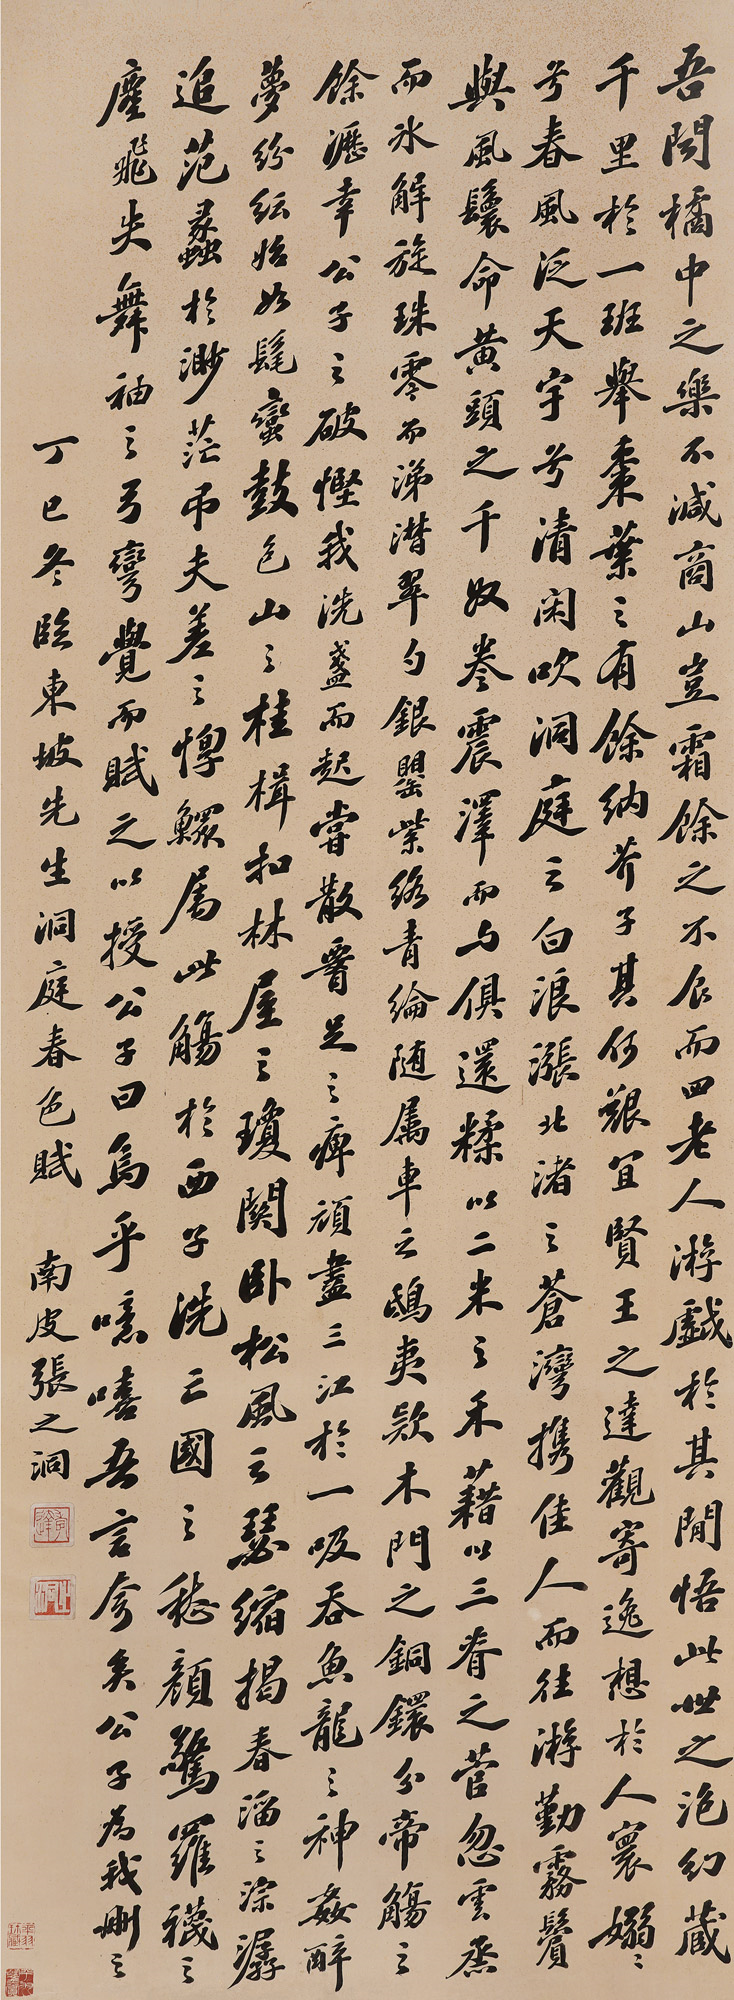 吾聞橘中之樂不減商山豈霜餘之不食而四老人游戲於其間悟此世之泡幻藏
千里於一班舉棗葉之有餘納芥子其何艱宜賢王之達觀寄逸想於人寰嫋〻
兮春風泛天宇兮清閑吹洞庭之白浪漲北渚之蒼灣携佳人而往游勤霧鬢
與風鬟命黄頭之千奴卷震澤而与俱還糅以二米之禾藉以三脊之菅忽雲蒸
而冰解旋珠零而涕潸翠勺銀罌紫絡青綸随屬車之鴟夷款木門之銅鐶分帝觴之
餘瀝幸公子之破慳我洗盞而起嘗散腰足之痺頑盡三江於一吸吞魚龍之神姦醉
夢紛紜始如髦蠻鼓包山之桂楫扣林屋之瓊關臥松風之瑟縮揭春溜之淙潺
追范蠡於渺茫弔夫差之惸鰥屬此觴於西子洗亡國之愁顏驚羅襪之
塵飛失舞袖之弓彎覺而賦之以授公子曰烏乎噫嘻吾言夸矣公子為我刪之
丁巳冬臨東坡先生洞庭春色賦 南皮張之洞